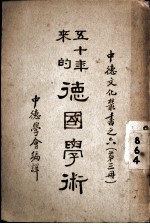 中德文化叢書之六(第三册)
五十年
來的
德國學術
中德學會編譯
864